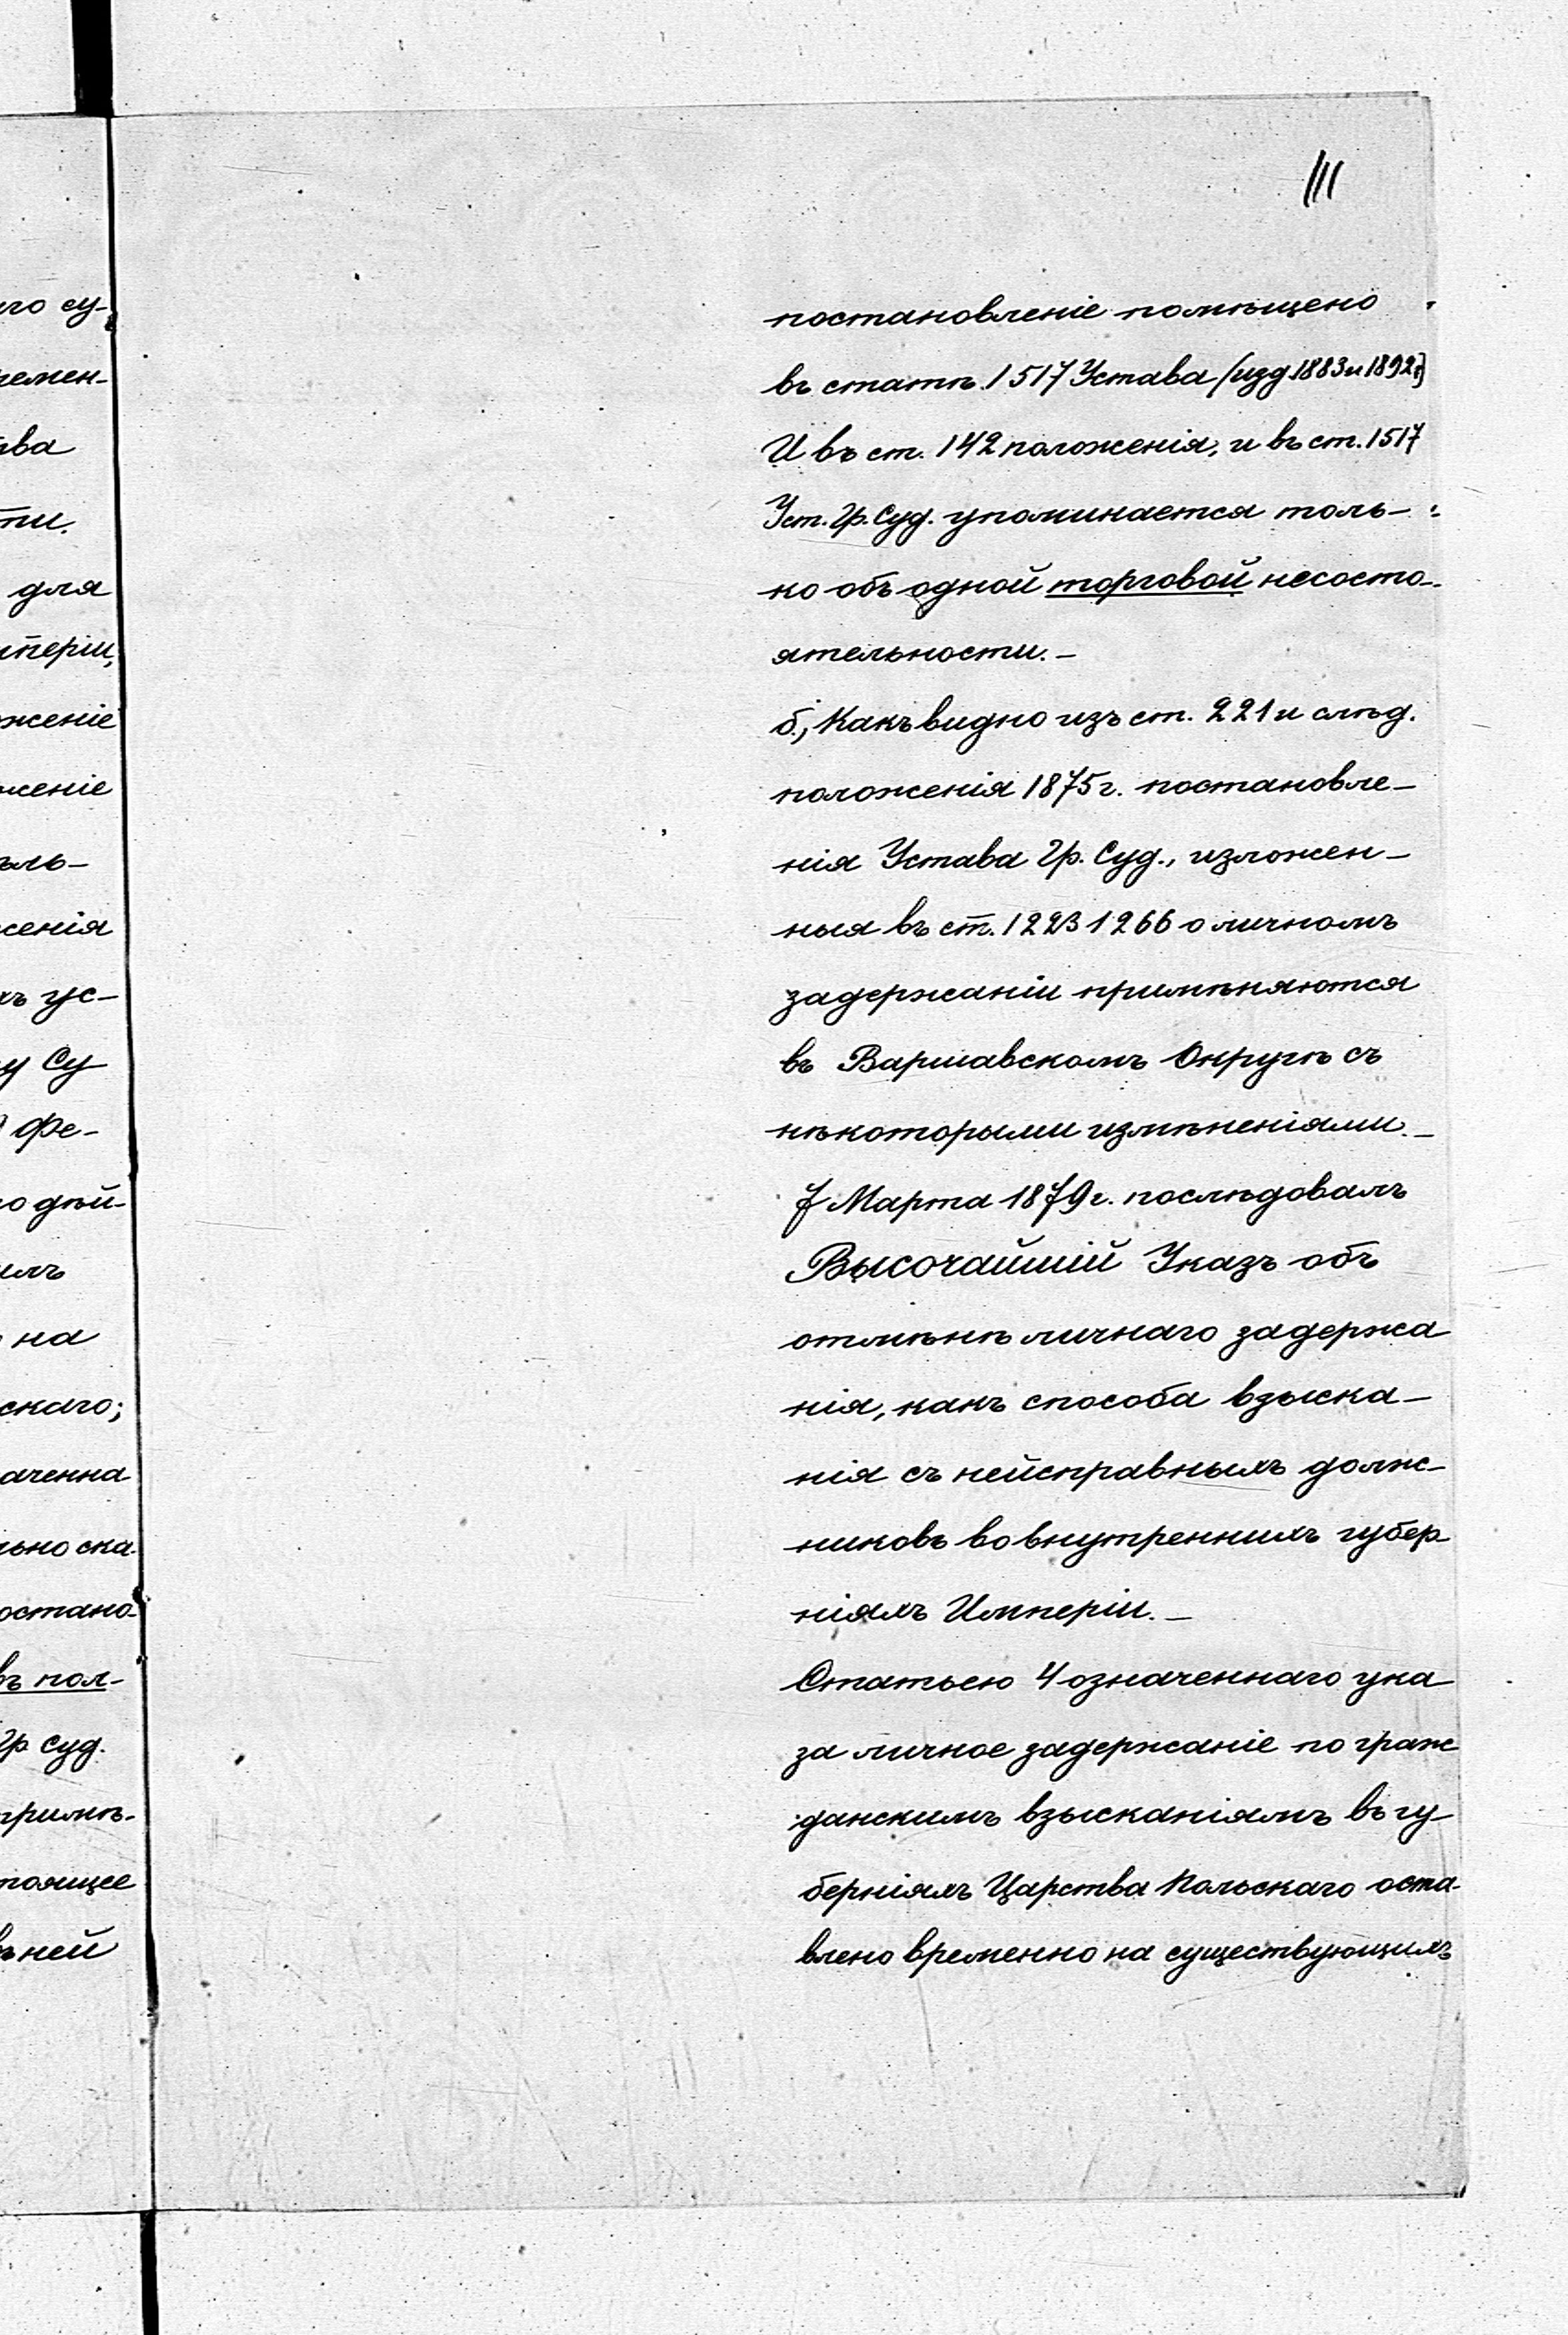 111
постановленіе помѣщено
въ статѣ 1517 Устава (изд 1883 и 1892 г)
И въ ст. 142 положенія, и въ ст. 1517
Уст. Гр. Суд. упоминается толь-
ко объ одной торговой несосто-
ятельности.-
б., Какъ видно изъ ст. 221 и слѣд.
положенія 1875 г. постановле-
нія Устава Гр. Суд., изложен-
ныя въ ст. 1223 1266 о личномъ
задержаніи примѣняются
въ Варшавскомъ Округѣ съ
нѣкоторыми измѣненіями.-
7 Марта 1879 г. послѣдовалъ
Высочайшій Указъ объ
отмѣнѣ личнаго задержа
нія, какъ способа взыска-
нія съ неисправныхъ долж-
никовъ во внутреннихъ губер
ніяхъ Имперіи.-
Статьею 4 означеннаго ука
за личное задержаніе по граж
данскимъ взысканіямъ въ гу
берніяхъ Царства Польскаго оста-
влено временно на существующихъ
го су-
ремен-
тва
ти.
для
мперіи,
оженіе
женіе
аль-
женія
хъ ус-
у Су
фе-
о дѣй-
илъ
на
скаго;
аченна
льно ска-
остано-
въ пол-
Гр Суд.
примѣ-
тоящее
ъ ней